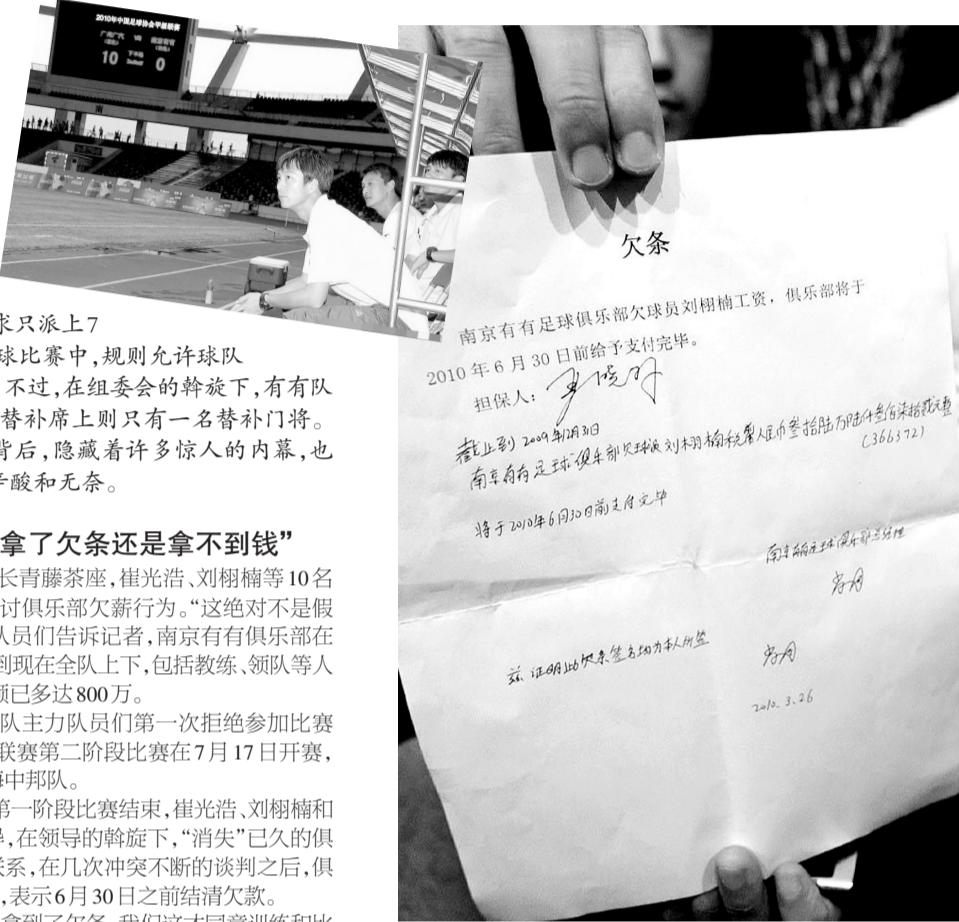 2010年中国足球协会甲级联赛
VS
10
0
求只派上7
球比赛中,规则允许球队
不过,在组委会的斡旋下,有有队
替补席上则只有一名替补门将。
背后,隐藏着许多惊人的内幕,也
辛酸和无奈。
拿了欠条还是拿不到钱”
长青藤茶座,崔光浩、刘栩楠等10名
讨俱乐部欠薪行为。“这绝对不是假
队员们告诉记者,南京有有俱乐部在
到现在全队上下,包括教练、领队等人
额已多达800万。
队主力队员们第一次拒绝参加比赛
联赛第二阶段比赛在7月17日开赛,
海中邦队。
第一阶段比赛结束,崔光浩、刘栩楠和
在领导的斡旋下,“消失”已久的俱
联系,在几次冲突不断的谈判之后,俱
,表示6月30日之前结清欠款。
拿到了欠条,我们这才同意训练和比
欠条
南京有有足球俱乐部欠球员刘栩楠工资，俱乐部将于
2010年6月30日前给予支付完毕。
担保人:
截止到2009年12月31日
南京有有足球俱乐部欠球员刘栩楠税署人民币叁拾陆万陆仟叁佰柒拾贰元整
(366372)
将于2010年6月30日前支付完毕
南京有有足球俱乐部总经理
兹证明此欠条签名均为本人所签
2010.3.26